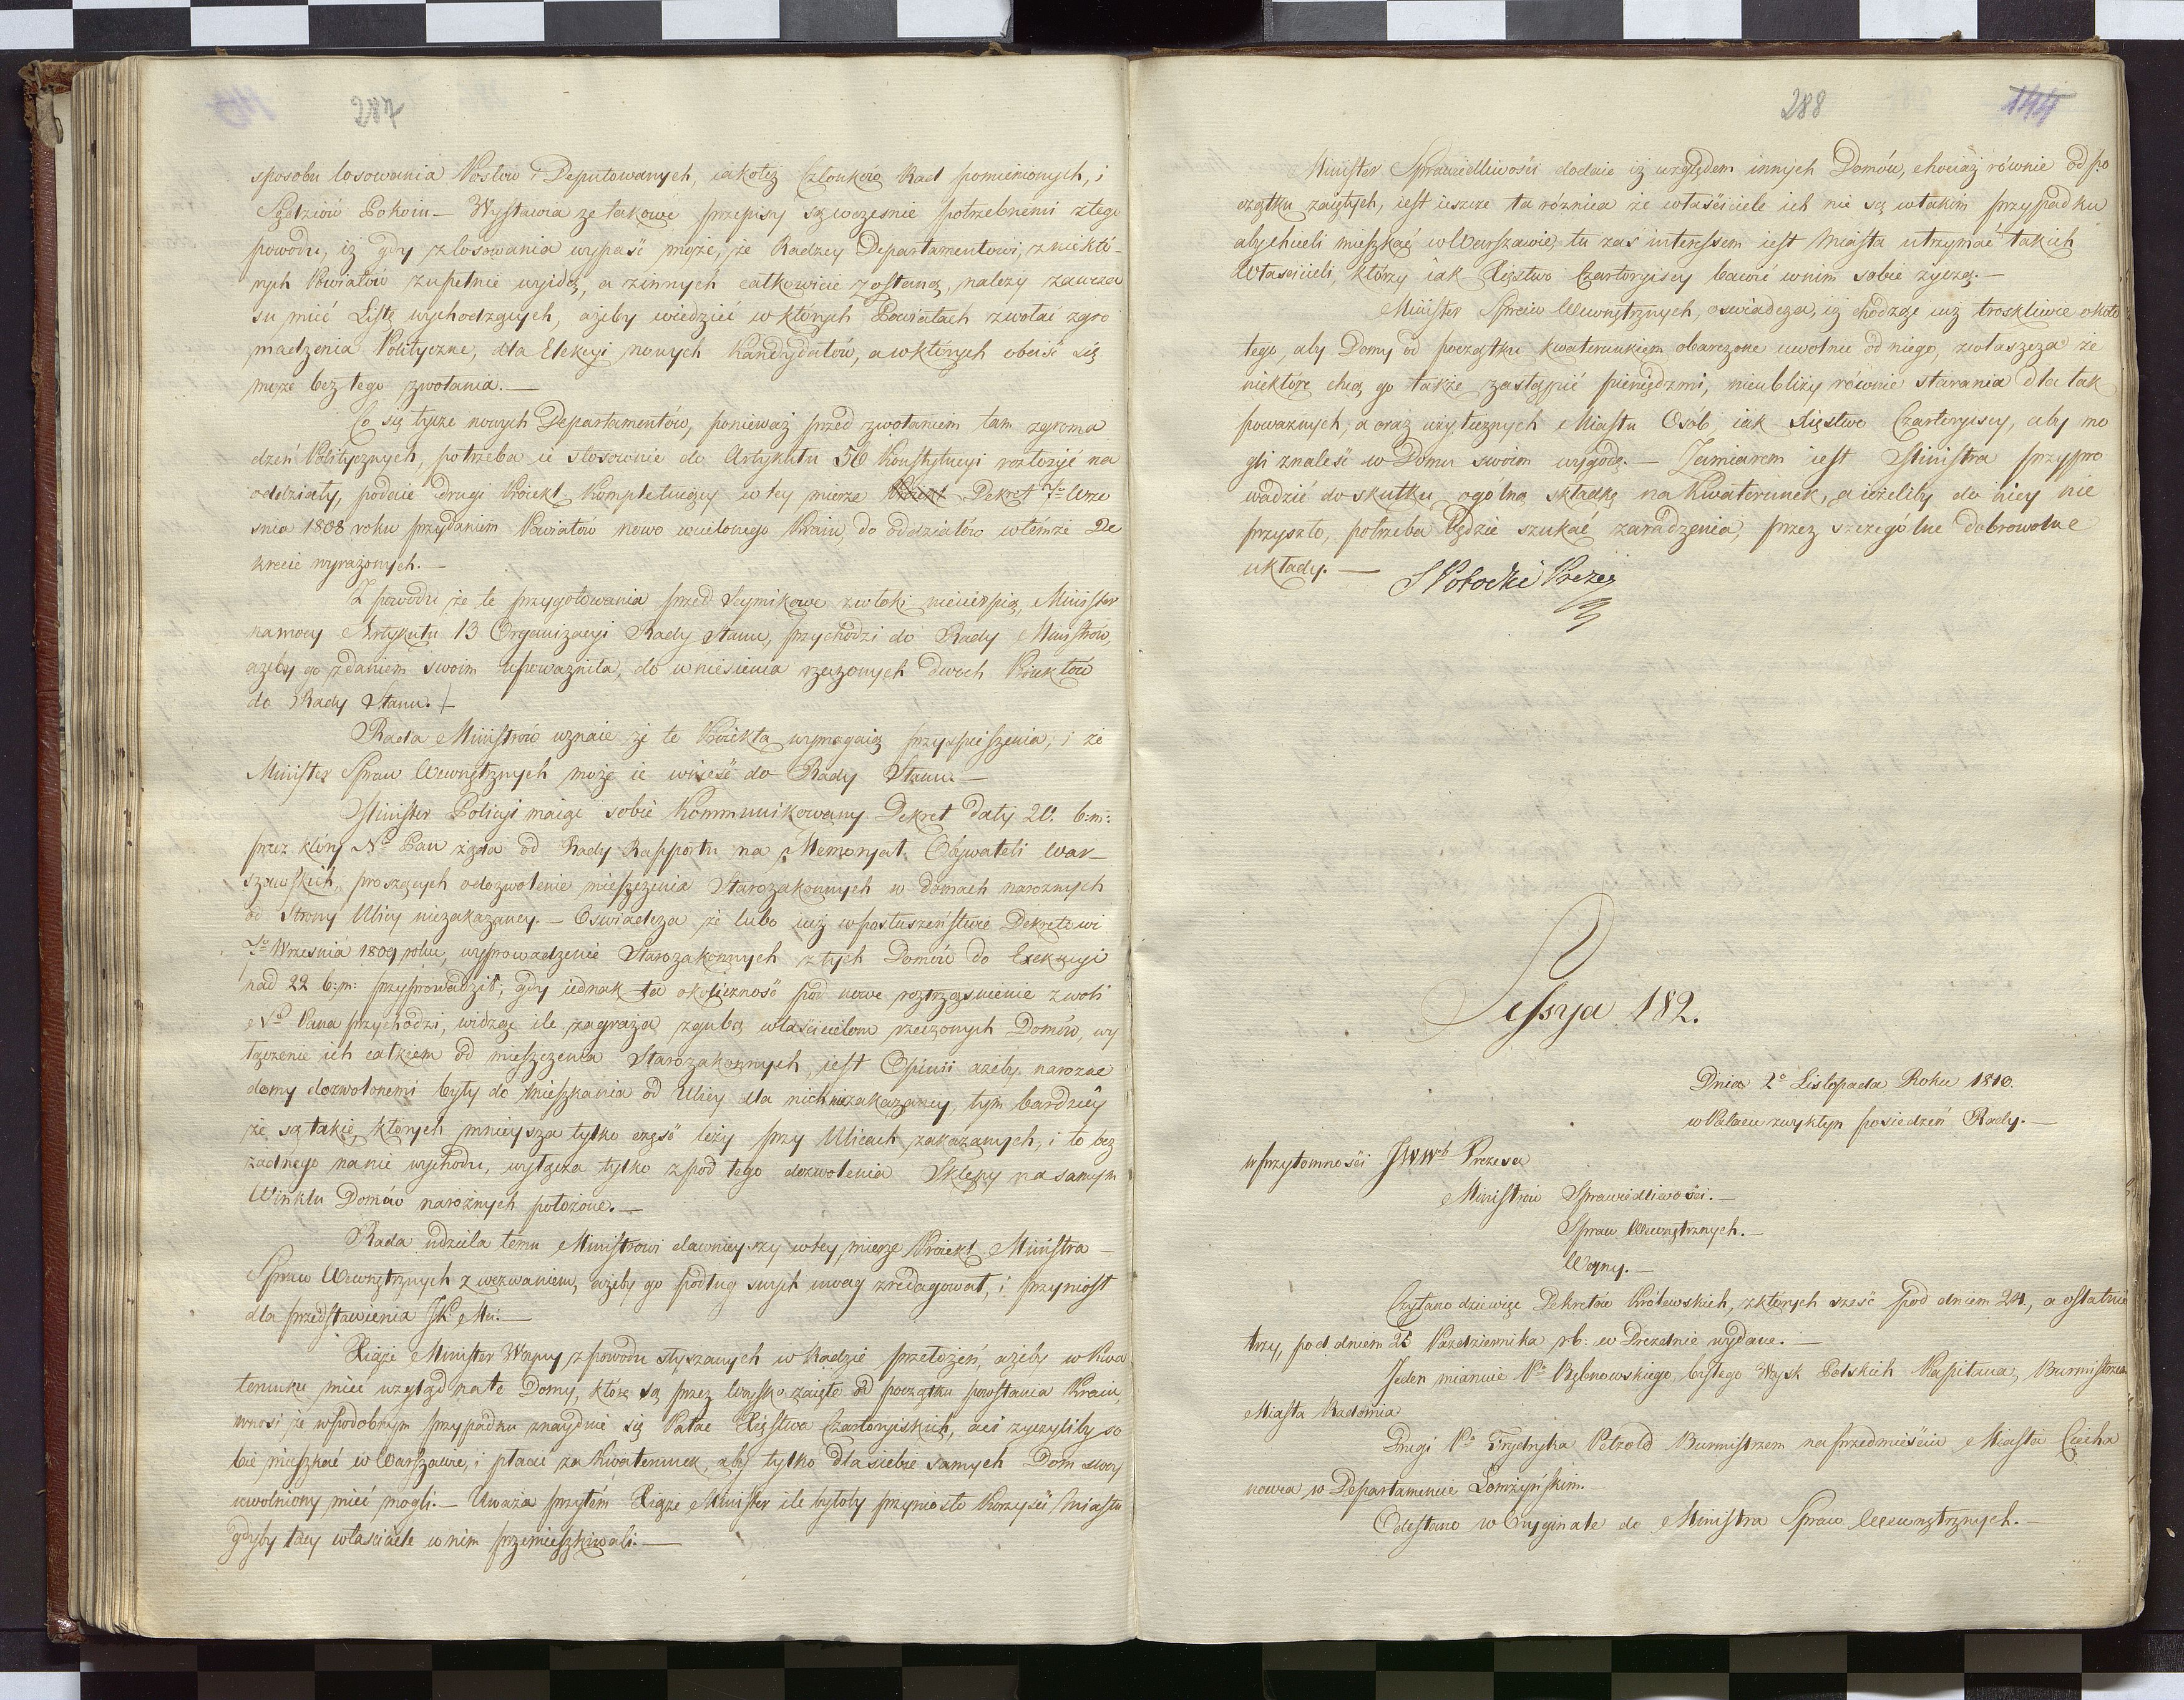 287
sposobu losowania Posłow i Deputowanych, iakotéż Członków Rad pomienionych, i
Sędziów Pokoiu – Wystawia że takowe przepisy są wczesnie potrzebnemi z tego
powodu, iż gdy z losowania wypaść może, że Radzcy Departamentowi, z niektó-
rych Powiatów zupełnie wyidą, a z innych całkowicie zostaną, należy zawcza
su mieć Listę wychodzących, ażeby wiedzieć w których Powiatach zwołać zgro
madzenia Polityczne, dla Elekcyi nowych Kandydatów, a w których obeiść się
może bez tego zwołania. —
Co się tycze nowych Departamentów, ponieważ przed zwołaniem tam zgroma
dzeń Politycznych, potrzeba ie stosownie do Artykułu 56 Konstytucyi rozłożyć na
oddziały, podaie drugi Proiekt kompletuiący w tey mierze Dekret 7o Wrze
śnia 1808 roku przydaniem Powiatów nowo wcielonego Kraiu, do oddziałów w témże De
krecie wyrażonych. —
Z powodu że te przygotowania przed Seymikowe zwłoki niecierpią, Minister
na mocy Artykułu 13 Organizacyi Rady Stanu, przychodzi do Rady Ministrów,
ażeby go zdaniem swoim upoważniła, do wniesienia rzeczonych dwóch Proiektów
do Rady Stanu. —
Rada Ministrów uznaie że te Proiekta wymagaią przyspieszenia, i że
Minister Spraw Wewnętrznych może ie wnieść do Rady Stanu. —
Minister Policyi maiąc sobie kommunikowany Dekret daty 20. b:m:
przez który Ny Pan żąda od Rady Rapportu na Memoryał Obywateli War–
szawskich, proszących o dozwolenie mieszczenia Starozakonnych w domach narożnych
od Strony Ulicy niezakazaney. – Oświadcza że lubo iuż w posłuszeństwie Dekretowi
7o Września 1809 roku, wyprowadzenie Starozakonnych z tych Domów do Exekucyi
nad 22 b:m: przyprowadził; gdy iednak ta okoliczność pod nowe roztrząśnienie z woli
No Pana przychodzi, widząc ile zagraża zgubą właścicielom rzeczonych Domów, wy
łączenie ich całkiem od mieszczenia Starozakonnych, iest Opinii ażeby narożne
domy dozwolonemi były do mieszkania od Ulicy dla nich niezakazaney, tym bardziéy
że są takie, których mnieysza tylko część leży przy Ulicach zakazanych, i to bez
żadnego na nie wychodu, wyłącza tylko z pod tego dozwolenia Sklepy na samym
Winklu Domów narożnych położone. —
Rada udziela temu Ministrowi dawnieyszy w tey mierze Proiekt Ministra –
Spraw Wewnętrznych z wezwaniem, ażeby go podług swych uwag zredagował, i przyniosł
dla przedstawienia JK: Mci. —
Xiąże Minister Woyny z powodu słyszanych w Radzie przełożeń, ażeby w Kwa
terunku mieć wzgląd na te Domy, które są przez Woysko zaięte od początku powstania Kraiu,
wnosi że w podobnym przypadku znayduie się Pałac Xięstwa Czartoryiskich, a ci życzyliby so
bie mieszkać w Warszawie, i płacić za Kwaterunek, aby tylko dla siebie samych Dom swoy
uwolniony mieć mogli. – Uważa przytém Xiąże Minister ile byłoby przyniosło Korzyści Miastu
gdyby tacy właściciele w nim przemieszkiwali. —
288
144
Minister Sprawiedliwości dodaie iż względem innych Domów, chociaż równie od po
czątku zaiętych, iest ieszcze ta różnica że właściciele ich nie są w takim przypadku
aby chcieli mieszkać w Warszawie, tu zaś interessem iest Miasta utrzymać takich
Właścicieli, którzy iak Xięstwo Czartoryiscy bawić w nim sobie życzą. —
Minister Spraw Wewnętrznych, oświadcza, iż chodząc iuż troskliwie około
tego, aby Domy od początku kwaterunkiem obarczone uwolnić od niego, zwłaszcza że
niektóre chcą go także zastąpić pieniędzmi, nieubliży równie starania dla tak
poważnych, a oraz użytecznych Miastu Osób, iak Xięstwo Czartoryiscy, aby mo
gli znaleść w Domu swoim wygodę. – Zamiarem iest Ministra przypro
wadzić do skutku ogólną składkę na Kwaterunek, a ieżeliby do niey nie
przyszło, potrzeba będzie szukać zaradzenia, przez szczególne dobrowolne
układy. —
S Potocki Prezes
Sessya 182.
Dnia 2o Listopada Roku 1810.
w Pałacu zwykłym posiedzeń Rady. —
w przytomności JWWch Prezesa
Ministrów Sprawiedliwości. —
Spraw Wewnętrznych. —
Woyny. —
Czytano dziewięć Dekretów Królewskich, z których sześć pod dniem 24., a ostatnie
trzy, pod dniem 25 Października r b: w Dreznie wydane. —
Jeden mianuie Po Bębnowskiego, byłego Woysk Polskich Kapitana, Burmistrzem
Miasta Radomia
Drugi Po Frydryka Petzold Burmistrzem na przedmieściu Miasta Ciecha
nowca w Departamencie Łomżyńskim. —
Odesłano w Oryginale do Ministra Spraw Wewnętrznych. —